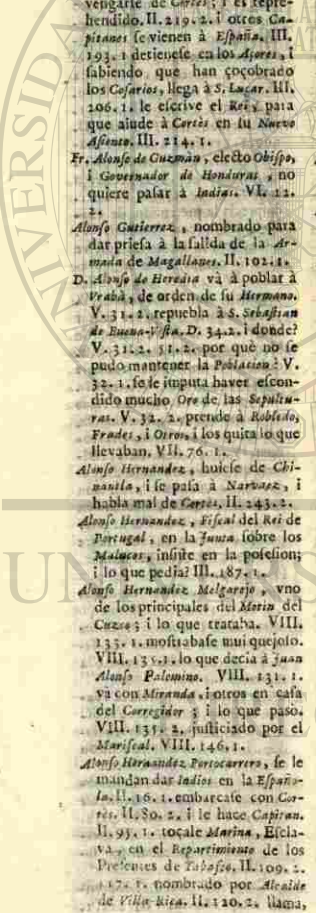 vengarse de Cortès; i es repre-
hendido. II. 219. 2. i otros Ca-
pitanes se vienen à España. III.
193. 1 detienese en los Açores, i
sabiendo que han çoçobrado
los Cosarios, llega à S. Lucar. III.
206. 1. le escrive el Rei, para
que aiude à Cortès en su Nuevo
Asiento. III. 214. 1.
Fr. Alonso de Guzmàn, electo Obispo,
i Governador de Honduras, no
quiere pasar à Indias. VI. 12.
2.
Alonso Gutierrez, nombrado para
dar priesa à la salida de la Ar-
mada de Magallanes. II. 102. 1.
D. Alonso de Heredia và à poblar à
Vrabà, de orden de su Hermano.
V. 31. 2. repuebla à S. Sebastian
de Buena-Vista. D. 34. 2. i donde?
V. 31. 2. 51. 2. por què no se
pudo mantener la Poblacion? V.
32. 1. se le imputa haver escon-
dido mucho Oro de las Sepultu-
ras. V. 32. 2. prende à Robledo,
Frades, i Otros, i los quita lo que
llevaban. VII. 76. 1.
Alonso Hernandez, huiese de Chi-
nantla, i se pasa à Narvaez, i
habla mal de Cortès. II. 243. 2.
Alonso Hernandez, Fiscal del Rei de
Portugal, en la Junta sobre los
Malucos, insiste en la posesion;
i lo que pedia? III. 187. 1.
Alonso Hernandez Melgarejo, vno
de los principales del Motin del
Cuzco; i lo que trataba. VIII.
133. 1. mostrabase mui quejoso.
VIII. 135. 1. lo que decia à Juan
Alonso Palomino. VIII. 131. 1.
và con Miranda, i otros en casa
del Corregidor; i lo que pasò.
VIII. 135. 2. justiciado por el
Mariscal. VIII. 146. 1.
Alonso Hernandez Portocarrero, se le
mandan dar Indios en la Españo-
la. II. 16. 1. embarcase con Cor-
tès. II. 80. 2. i le hace Capitan.
II. 95. 1. tocale Marina, Escla-
va, en el Repartimiento de los
Presentes de Tabasco. II. 109. 2.
117. 1. nombrado por Alcalde
de Villa-Rica. II. 120. 2. llama,